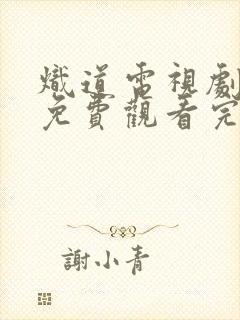 熾道電視劇
免費觀看完
謝小青